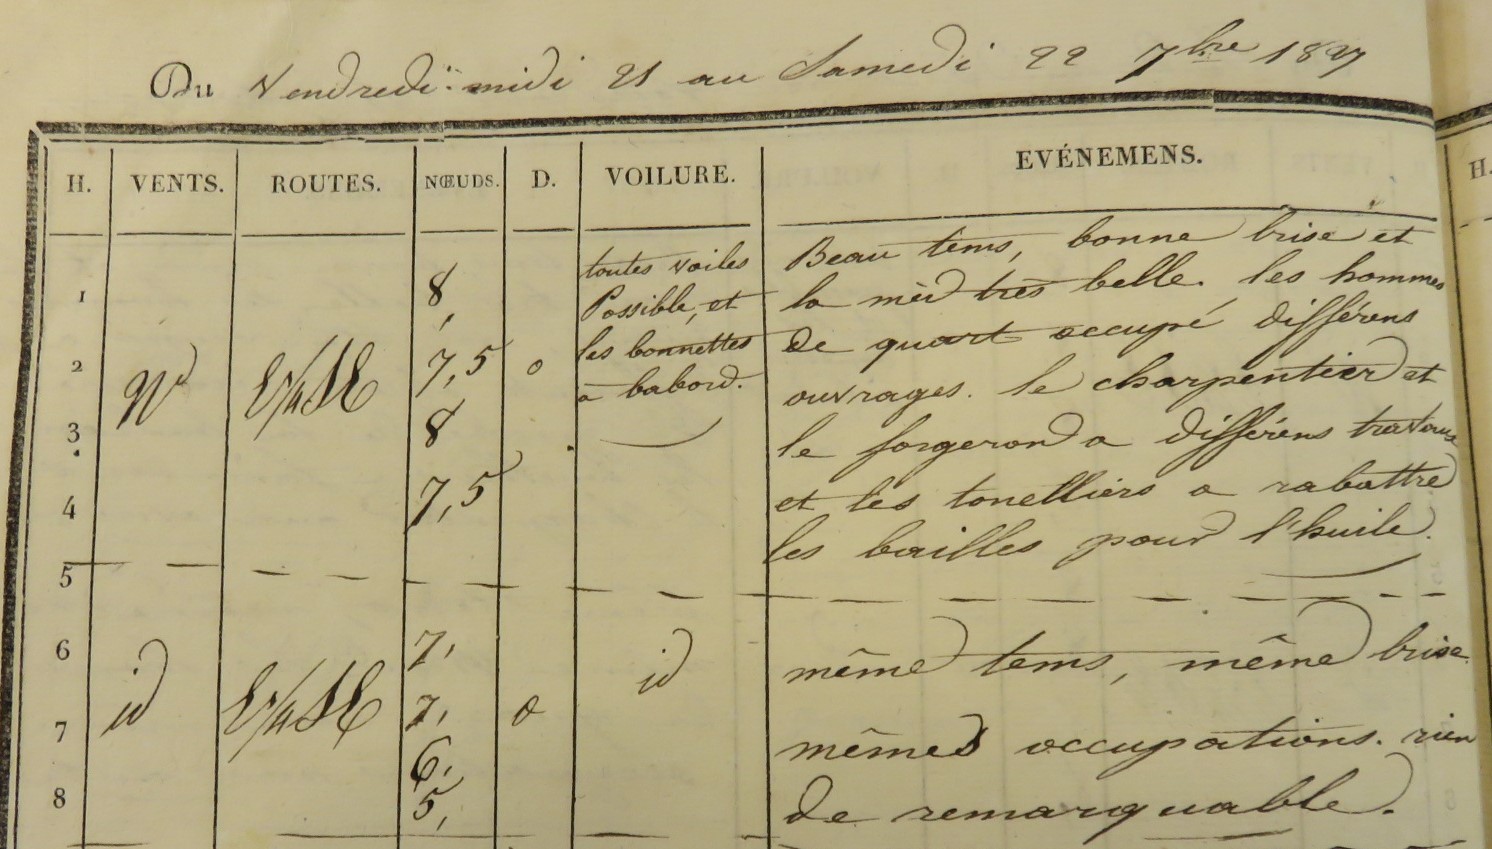 Du Vendredi midi 21 au Samedi 22 7bre 1827
H. VENTS. ROUTES. NŒUDS. D. VOILURE. EVÉNEMENS. H.
1
2
3
4
5
6
7
8
W
id
E1/4SE
E1/4SE
8,
7,5
8
7,5
7,
7,
6,
5,
o
o
toutes voiles
Possible, et
les bonnettes
a babord.
id
Beau tems, bonne brise et
la mer très belle. les hommes
de quart occupé différens
ouvrages. le charpentier et
le forgeron a différens travaux
et les tonelliers a rabattre
les bailles pour l'huile.
même tems, même brise.
mêmes occupations. rien
de remarquable.